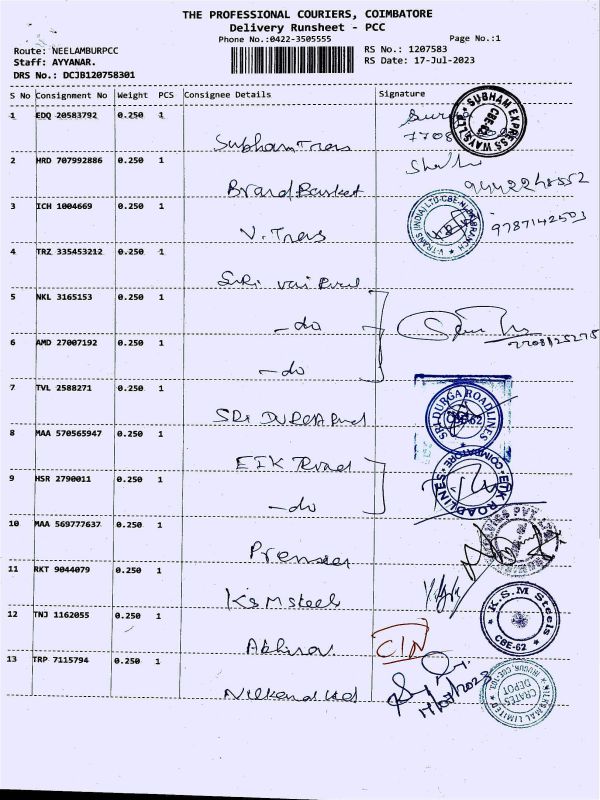 THE PROFESSIONAL COURIERS, COIMBATORE
Delivery Runsheet - PCC
Phone No.:0422-3505555
Page No.:1
Route: NEELAMBURPCC
Staff: AYYANAR.
DRS No.: DCJB120758301
RS No.: 1207583
RS Date: 17-Jul-2023
S No Consignment No Weight PCS Consignee Details Signature
1 EDQ 20583792 0.250 1
Subham Trans
SUBHAM EXPRESS WAYS LLP CBE-62
2 HRD 707992886 0.250 1
Brand Basket
9442248552
3 ICH 1004669 0.250 1
V. Trans
V-TRANS (INDIA) LTD-CBE-N. BRANCH
9787142503
4 TRZ 335453212 0.250 1
5 NKL 3165153 0.250 1
- do
6 AMD 27007192 0.250 1
- do
7 TVL 2588271 0.250 1
SRI DURGA
SRI DURGA ROADLINES
8 MAA 570565947 0.250 1
ETK Road
ETK ROADLINES COIMBATORE
9 HSR 2790011 0.250 1
- do
10 MAA 569777637 0.250 1
Premier
11 RKT 9044079 0.250 1
KSM Steels
K.S.M Steels CBE-62
12 TNJ 1162055 0.250 1
C/N
13 TRP 7115794 0.250 1
Nilkamal Ltd
17/07/2023
NILKAMAL LIMITED
CRATES DEPOT